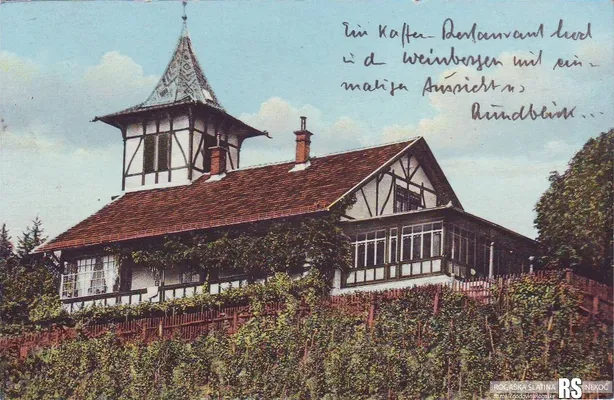 Ein Kaffee Restaurant hoch
in d Weinbergen mit ein-
maliger Aussicht u.
Rundblick...
ROGAŠKA SLATINA
RS
NEKOČ